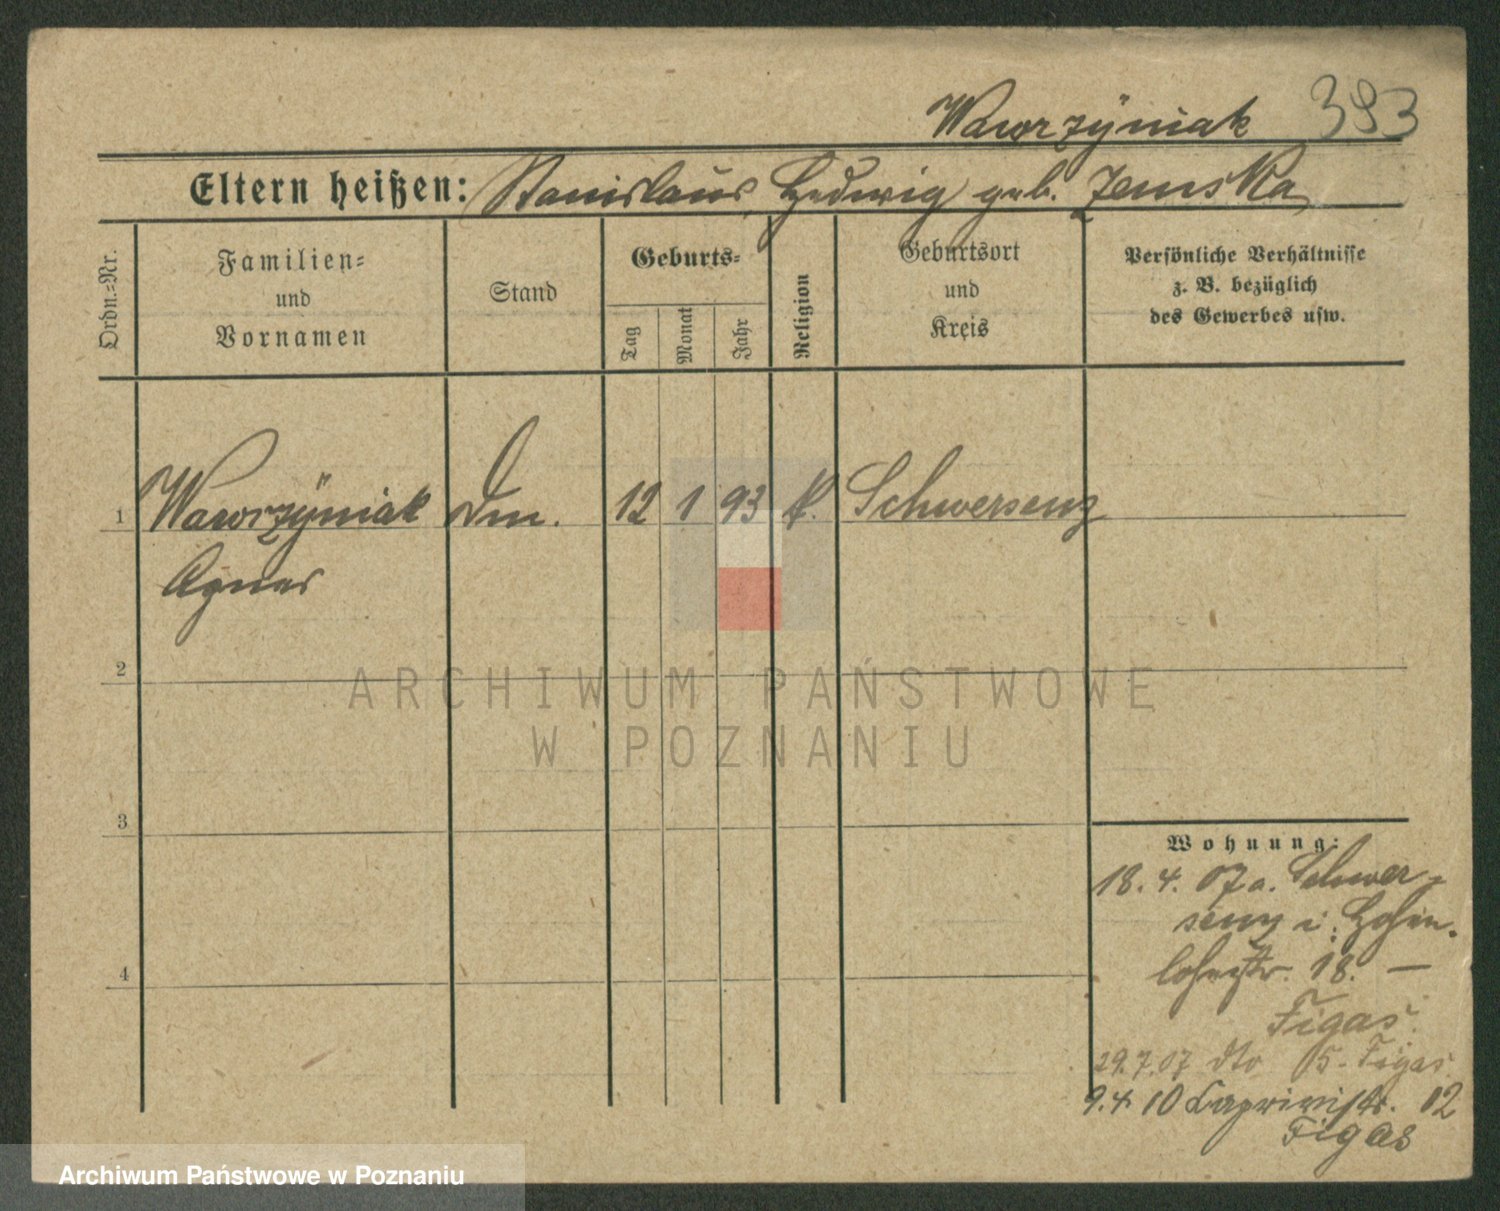 Wawrzÿniak 393
Eltern heißen: Stanislaus, Hedwig geb. Zemska
Ordn.=Nr.
Familien=
und
Vornamen
Stand
Geburts=
Tag
Monat
Jahr
Religion
Geburtsort
und
Kreis
Persönliche Verhältnisse
z. B. bezüglich
des Gewerbes usw.
1 Wawrzÿniak Dm. 12 1 93 k. Schwersenz
Agnes
2
ARCHIWUM PAŃSTWOWE
W POZNANIU
3
Wohnung:
18. 4. 07 a. Schwer-
senz i. Hohen-
lohestr. 18. —
Figas.
4
29. 7. 07 dto 5. Figas
9. 4. 10 Caprivistr. 12
Figas
Archiwum Państwowe w Poznaniu